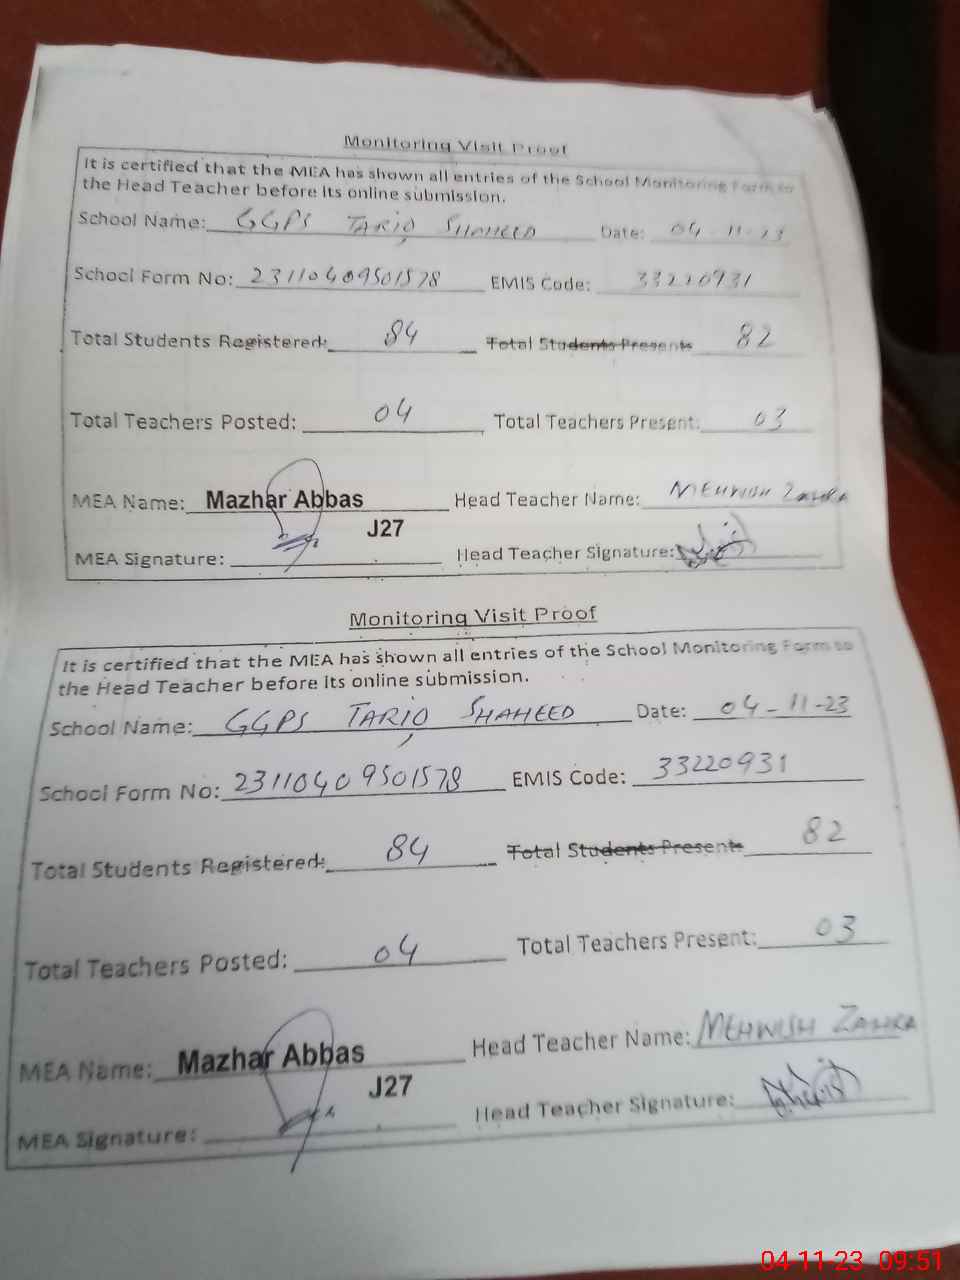 Monitoring Visit Proof
It is certified that the MEA has shown all entries of the School Monitoring Form to
the Head Teacher before its online submission.
School Name: GGPS TARIQ SHAHEED Date: 04-11-23
School Form No: 23110409501578 EMIS Code: 33220931
Total Students Registered: 84 Total Students Presents 82
Total Teachers Posted: 04 Total Teachers Present: 03
MEA Name: Mazhar Abbas Head Teacher Name: MEHWISH ZAHRA
J27
MEA Signature: Head Teacher Signature:
Monitoring Visit Proof
It is certified that the MEA has shown all entries of the School Monitoring Form to
the Head Teacher before its online submission.
School Name: GGPS TARIQ SHAHEED Date: 04-11-23
School Form No: 23110409501578 EMIS Code: 33220931
Total Students Registered: 84 Total Students Presents 82
Total Teachers Posted: 04 Total Teachers Present: 03
MEA Name: Mazhar Abbas Head Teacher Name: MEHWISH ZAHRA
J27
MEA Signature: Head Teacher Signature:
04-11-23 09:51